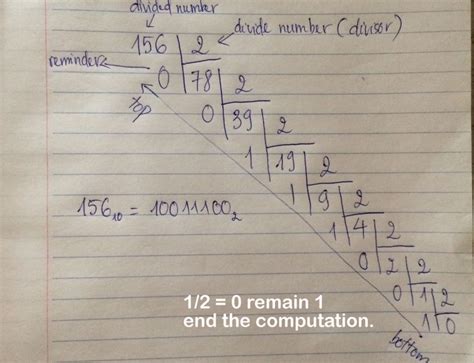 divided number
156 2 divide number (divisor)
reminders 0 78 2
top 0 39 2
1 19 2
1 9 2
156₁₀ = 10011100₂
1 4 2
0 2 2
0 1 2
1/2 = 0 remain 1
1 0
end the computation.
bottom